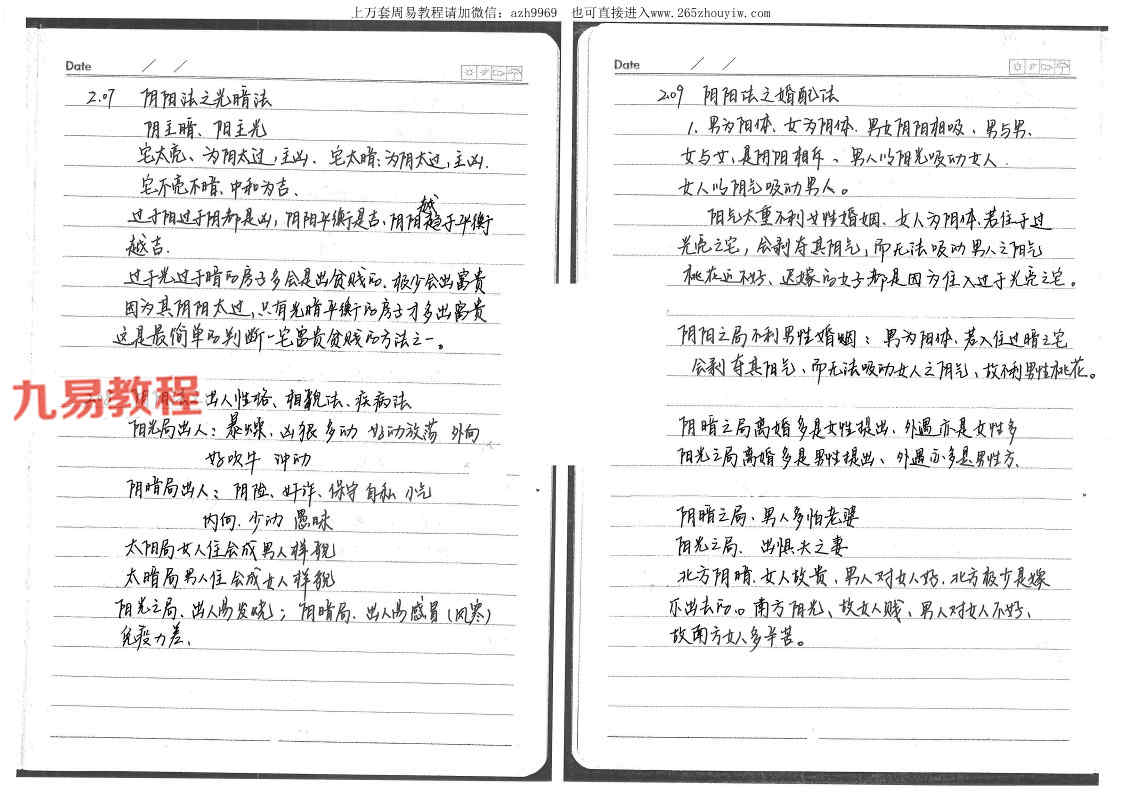 上万套周易教程请加微信：azh9969 也可直接进入www.265zhouyiw.com
Date / /
2.07 阴阳法之光暗法
阴主暗、阳主光
宅太亮、为阳太过，主凶．宅太暗：为阴太过，主凶．
宅不亮不暗、中和为吉．
过于阳过于阴都是凶，阴阳平衡是吉，阴阳越趋于平衡
越吉．
过于光过于暗的房子多会是出贫贱的、极少会出富贵
因为其阴阳太过，只有光暗平衡的房子才多出富贵
这是最简单的判断一宅富贵贫贱的方法之一。
九易教程
出人性格、相貌法、疾病法
阳光局出人：暴燥、凶狠 多动 好动放荡 外向
好吹牛 冲动
阴暗局出人；阴险、奸诈、保守 自私 小气
内向．少动 愚昧
太阳局女人住会成男人样貌
太暗局男人住会成女人样貌
阳光之局、出人易发烧；阴暗局、出人易感冒（风寒）
免疫力差．
Date / /
2.09 阴阳法之婚配法
1．男为阳体．女为阴体．男女阴阳相吸、男与男、
女与女，是阴阳相斥、男人以阳光吸动女人．
女人以阴气吸动男人。
阳气太重不利女性婚姻．女人为阴体．若住于过
光亮之宅，会剥夺其阴气，而无法吸动男人之阳气
桃花运不好、迟嫁的女子都是因为住入过于光亮之宅。
阴阳之局不利男性婚姻：男为阳体．若入住过暗之宅
会剥夺其阳气、而无法吸动女人之阴气、故不利男性桃花。
阴暗之局离婚多是女性提出、外遇亦是女性多
阳光之局离婚多是男性提出、外遇亦多是男性方．
阴暗之局、男人多怕老婆
阳光之局．出惧夫之妻
北方阴暗．女人故贵，男人对女人好．北方极少是嫁
不出去的。南方阳光、故女人贱、男人对女人不好、
故南方女人多辛苦。